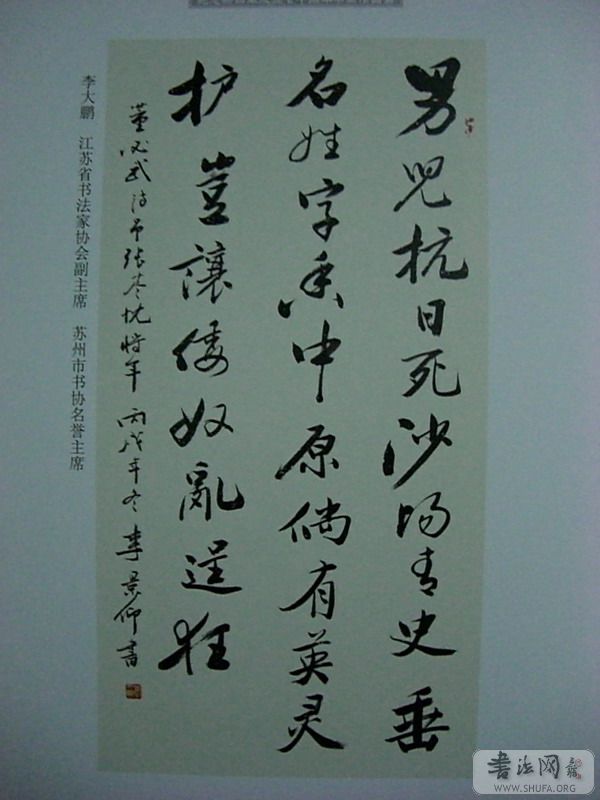 男兒抗日死沙场青史垂
名姓字香中原倘有英灵
护豈讓倭奴亂逞狂
董必武诗吊张荩忱将军 丙戌年冬 李景仰書
李大鹏 江苏省书法家协会副主席 苏州市书协名誉主席
書法网
WWW.SHUFA.ORG